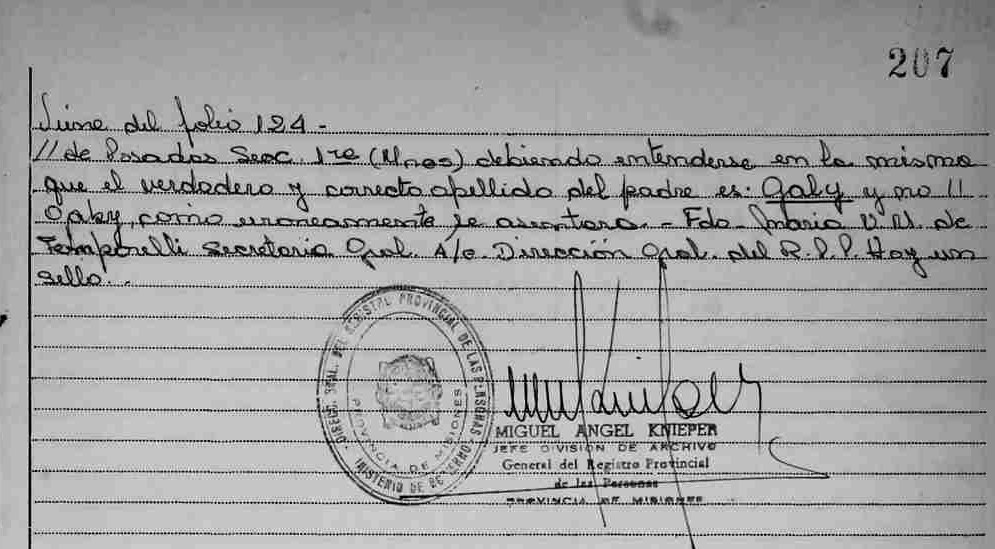 207
Viene del folio 124 -
// de Posadas Secc. 1ra (Unos) debiendo entenderse en la misma
que el verdadero y correcto apellido del padre es: Galy y no //
Oaby, como erroneamente se asentara. - Fdo. Maria V. U. de
Temporelli Secretaria Gral. A/c. Dirección Gral. del R.P.P. Hay un
sello. -
DIRECC. GRAL. DEL REGISTRO PROVINCIAL DE LAS PERSONAS
PROVINCIA DE MISIONES
MINISTERIO DE GOBIERNO
MIGUEL ANGEL KNIEPER
JEFE DIVISION DE ARCHIVO
General del Registro Provincial
de las Personas
PROVINCIA DE MISIONES